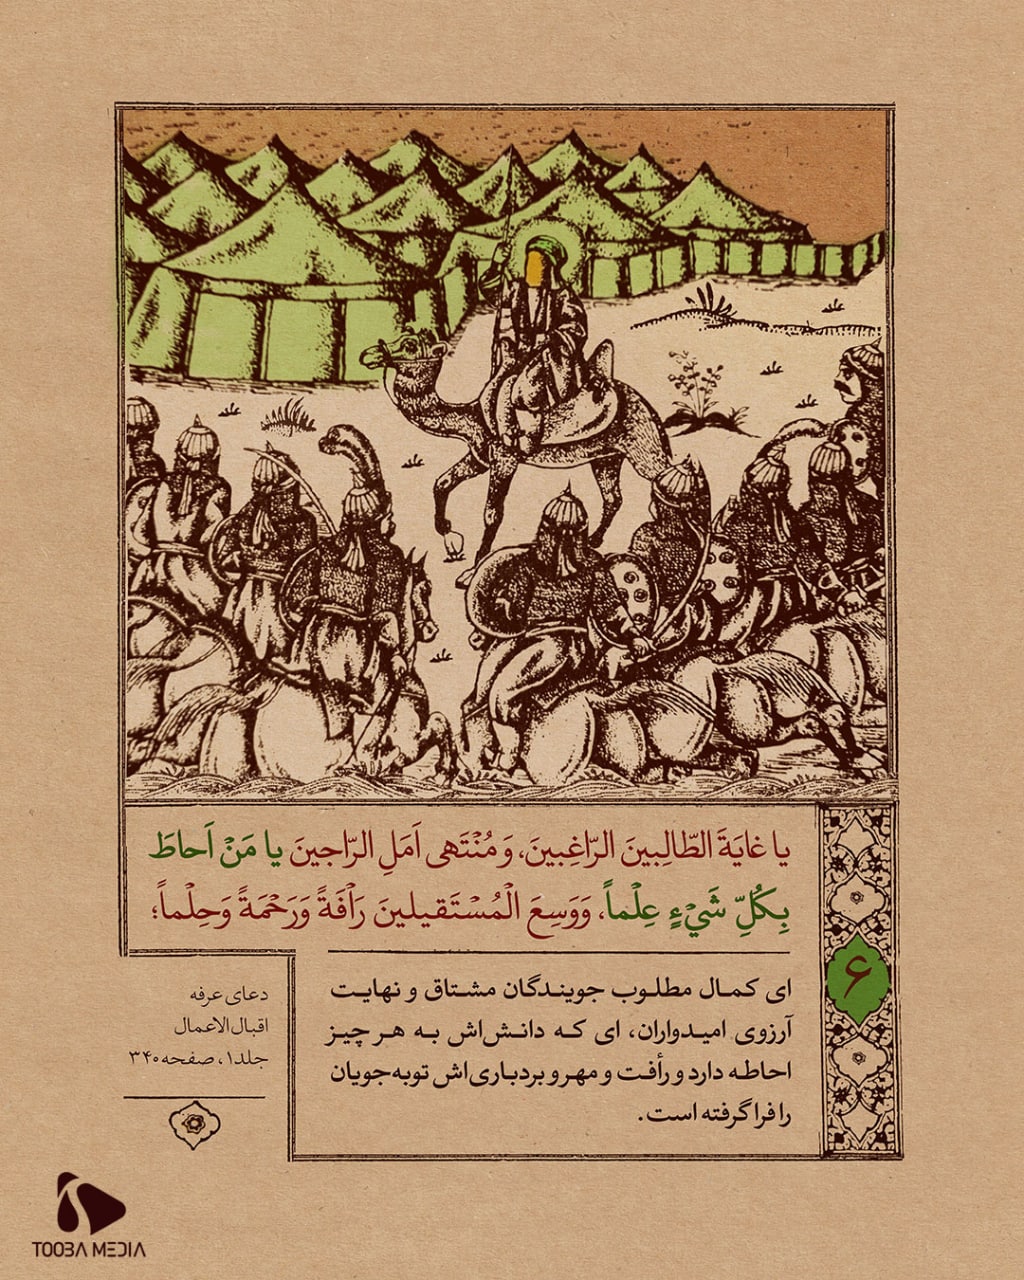 یا غایَةَ الطّالِبینَ الرّاغِبینَ، وَ مُنْتَهی اَمَلِ الرّاجینَ یا مَنْ اَحاطَ
بِکُلِّ شَيْءٍ عِلْماً، وَوَسِعَ الْمُسْتَقیلینَ رَاْفَةً وَرَحْمَةً وَحِلْماً؛
۶
ای کمال مطلوب جویندگان مشتاق و نهایت
آرزوی امیدواران، ای که دانش‌اش به هر چیز
احاطه دارد و رأفت و مهر و بردباری‌اش توبه‌جویان
را فرا گرفته است.
دعای عرفه
اقبال الاعمال
جلد۱، صفحه۳۴۰
TOOBA MEDIA